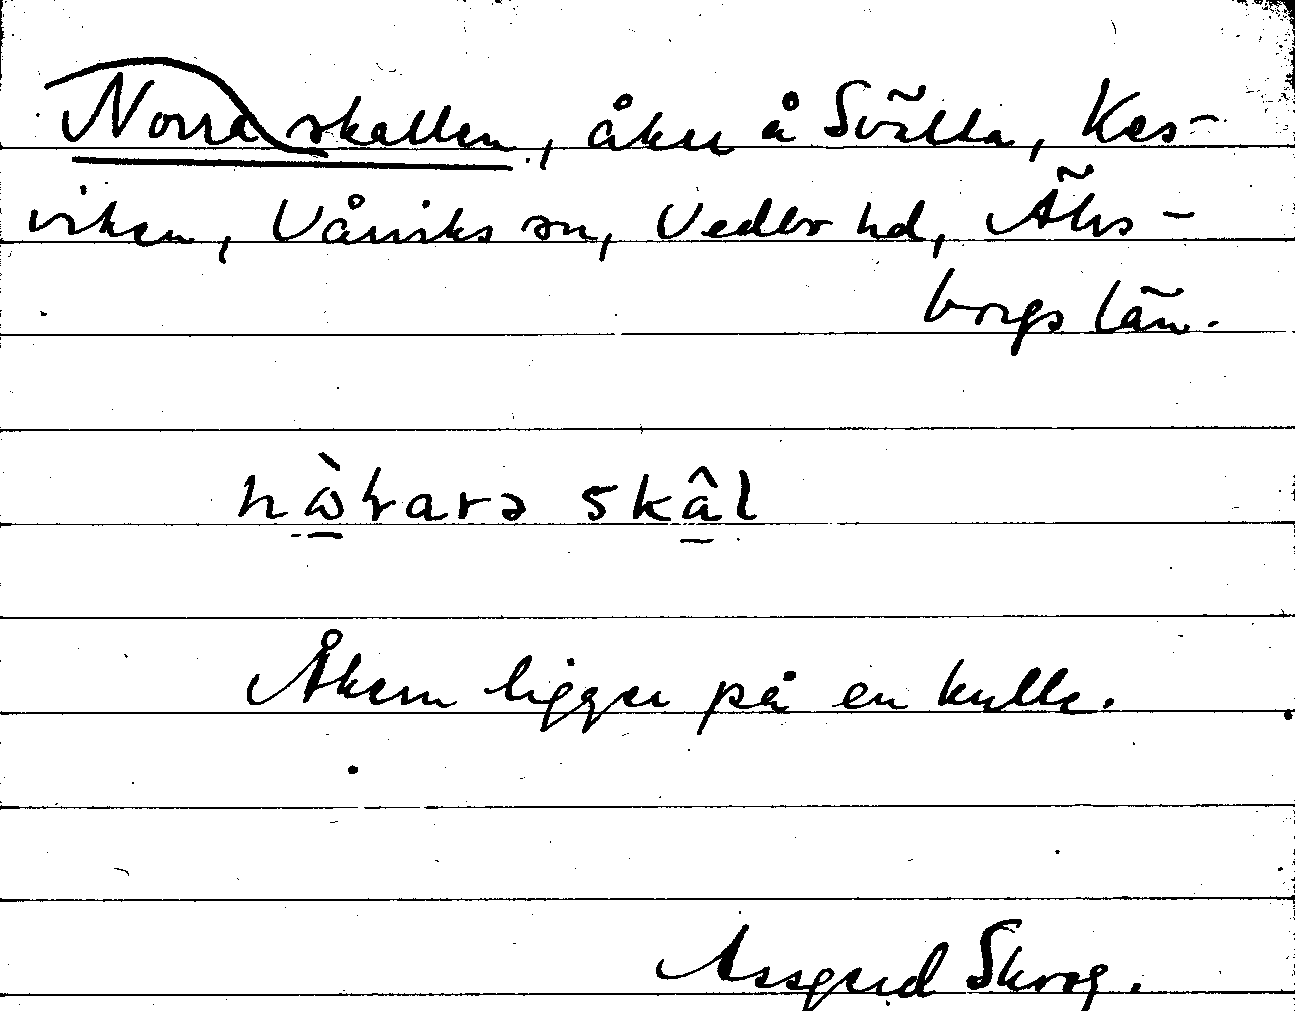 Norra skallen, åker å Svälta, Kes-
viken, Vårviks sn, Vedbo hd, Älvs-
borgs län.
skâl
Åkern ligger på en kulle.
Assgerd Skrog.